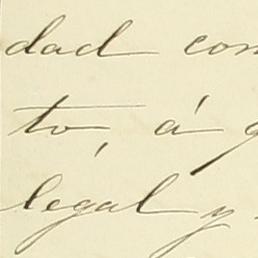 dad con
to, á q
legal y